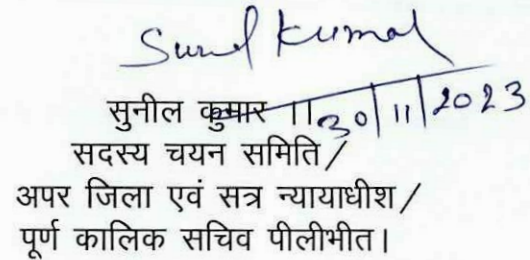 Sunil Kumar
सुनील कुमार ।।
30/11/2023
सदस्य चयन समिति/
अपर जिला एवं सत्र न्यायाधीश/
पूर्ण कालिक सचिव पीलीभीत।